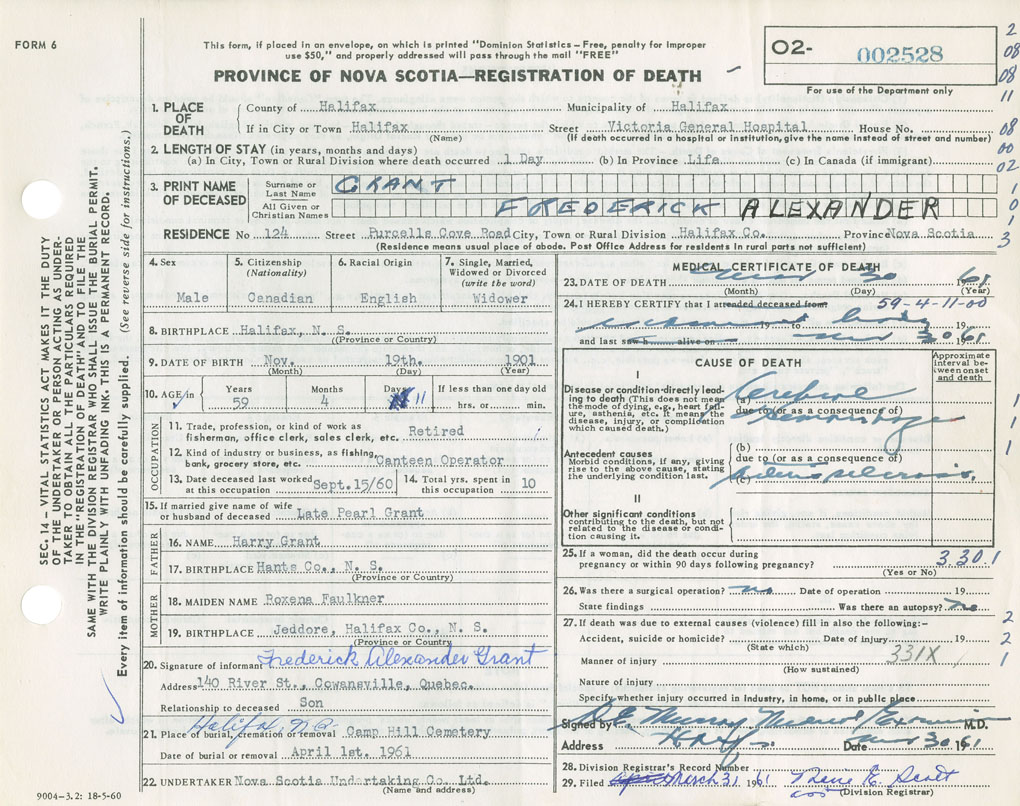 FORM 6
This form, if placed in an envelope, on which is printed "Dominion Statistics – Free, penalty for improper
use $50," and properly addressed will pass through the mail "FREE"
PROVINCE OF NOVA SCOTIA—REGISTRATION OF DEATH
O2- 002528
For use of the Department only
2
08
08
11
08
00
02
1
0
1
3
SEC. 14 – VITAL STATISTICS ACT MAKES IT THE DUTY
OF THE UNDERTAKER OR PERSON ACTING AS UNDER-
TAKER TO OBTAIN ALL THE PARTICULARS REQUIRED
IN THE "REGISTRATION OF DEATH" AND TO FILE THE
SAME WITH THE DIVISION REGISTRAR WHO SHALL ISSUE THE BURIAL PERMIT.
WRITE PLAINLY WITH UNFADING INK. THIS IS A PERMANENT RECORD.
Every item of information should be carefully supplied. (See reverse side for instructions.)
1. PLACE OF DEATH
County of Halifax Municipality of Halifax
If in City or Town Halifax Street Victoria General Hospital House No.
(Name) (If death occurred in a hospital or institution, give the name instead of street and number)
2. LENGTH OF STAY (in years, months and days)
(a) In City, Town or Rural Division where death occurred 1 Day (b) In Province Life (c) In Canada (if immigrant)
3. PRINT NAME OF DECEASED
Surname or Last Name GRANT
All Given or Christian Names FREDERICK ALEXANDER
RESIDENCE No. 124 Street Purcells Cove Road City, Town or Rural Division Halifax Co. Province Nova Scotia
(Residence means usual place of abode. Post Office Address for residents in rural parts not sufficient)
4. Sex Male
5. Citizenship (Nationality) Canadian
6. Racial Origin English
7. Single, Married, Widowed or Divorced (write the word) Widower
8. BIRTHPLACE Halifax, N. S.
(Province or Country)
9. DATE OF BIRTH Nov. 19th. 1901
(Month) (Day) (Year)
10. AGE in Years 59 Months 4 Days 11 If less than one day old hrs. or min.
OCCUPATION
11. Trade, profession, or kind of work as
fisherman, office clerk, sales clerk, etc. Retired
12. Kind of industry or business, as fishing,
bank, grocery store, etc. Canteen Operator
13. Date deceased last worked at this occupation Sept.15/60
14. Total yrs. spent in this occupation 10
15. If married give name of wife
or husband of deceased Late Pearl Grant
FATHER
16. NAME Harry Grant
17. BIRTHPLACE Hants Co., N. S.
(Province or Country)
MOTHER
18. MAIDEN NAME Roxena Faulkner
19. BIRTHPLACE Jeddore, Halifax Co., N. S.
(Province or Country)
20. Signature of informant Frederick Alexander Grant
Address 140 River St., Cowansville, Quebec.
Relationship to deceased Son
Halifax
21. Place of burial, cremation or removal Camp Hill Cemetery
Date of burial or removal April 1st. 1961
22. UNDERTAKER Nova Scotia Undertaking Co. Ltd.
(Name and address)
9004-3.2: 18-5-60
MEDICAL CERTIFICATE OF DEATH
23. DATE OF DEATH 30 1961
(Month) (Day) (Year)
24. I HEREBY CERTIFY that I attended deceased from 59-4-11-00
19 to body 19
and last saw h alive on 30 1961
CAUSE OF DEATH
Approximate interval between onset and death
I
Disease or condition directly lead-
ing to death (This does not mean
the mode of dying, e.g., heart fail-
ure, asthenia, etc. It means the
disease, injury, or complication
which caused death.)
(a) Cerebral
due to (or as a consequence of)
hemorrhage
Antecedent causes
Morbid conditions, if any, giving
rise to the above cause, stating
the underlying condition last.
(b)
due to (or as a consequence of)
(c)
II
Other significant conditions
contributing to the death, but not
related to the disease or condi-
tion causing it.
1
1
1
1
25. If a woman, did the death occur during
pregnancy or within 90 days following pregnancy? 3301
(Yes or No)
26. Was there a surgical operation? no Date of operation 19
State findings Was there an autopsy? no
27. If death was due to external causes (violence) fill in also the following:–
Accident, suicide or homicide? Date of injury 19
(State which)
Manner of injury 331X
(How sustained)
Nature of injury
Specify whether injury occurred in Industry, in home, or in public place
2
2
1
Signed by Murray Medical Examiner M.D.
Address Hfx Date 30 1961
28. Division Registrar's Record Number
29. Filed March 31 1961 Scott
(Division Registrar)